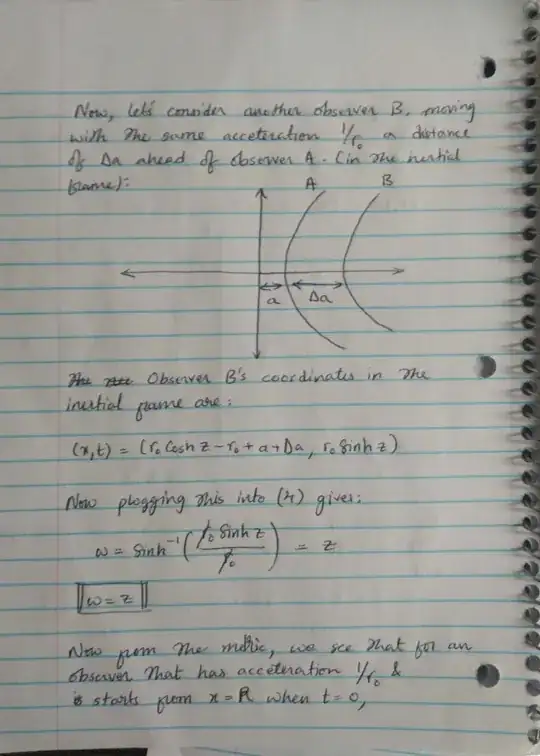 Now, let's consider another observer B, moving
with the same acceleration 1/r₀ a distance
of Δa ahead of observer A. (in the inertial
frame):
A B
a Δa
Observer B's coordinates in the
inertial frame are:
(x,t) = (r₀ Cosh z - r₀ + a + Δa, r₀ Sinh z)
Now plogging this into (4) gives:
ω = Sinh⁻¹(r₀ Sinh z / r₀) = z
ω = z
Now from the metric, we see that for an
observer that has acceleration 1/r₀ &
starts from x = R when t = 0,